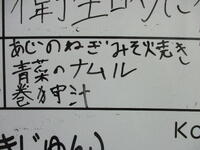 衛生的に
あじのねぎみそ焼き
青菜のナムル
巻卵汁
きじゅん)
Ko